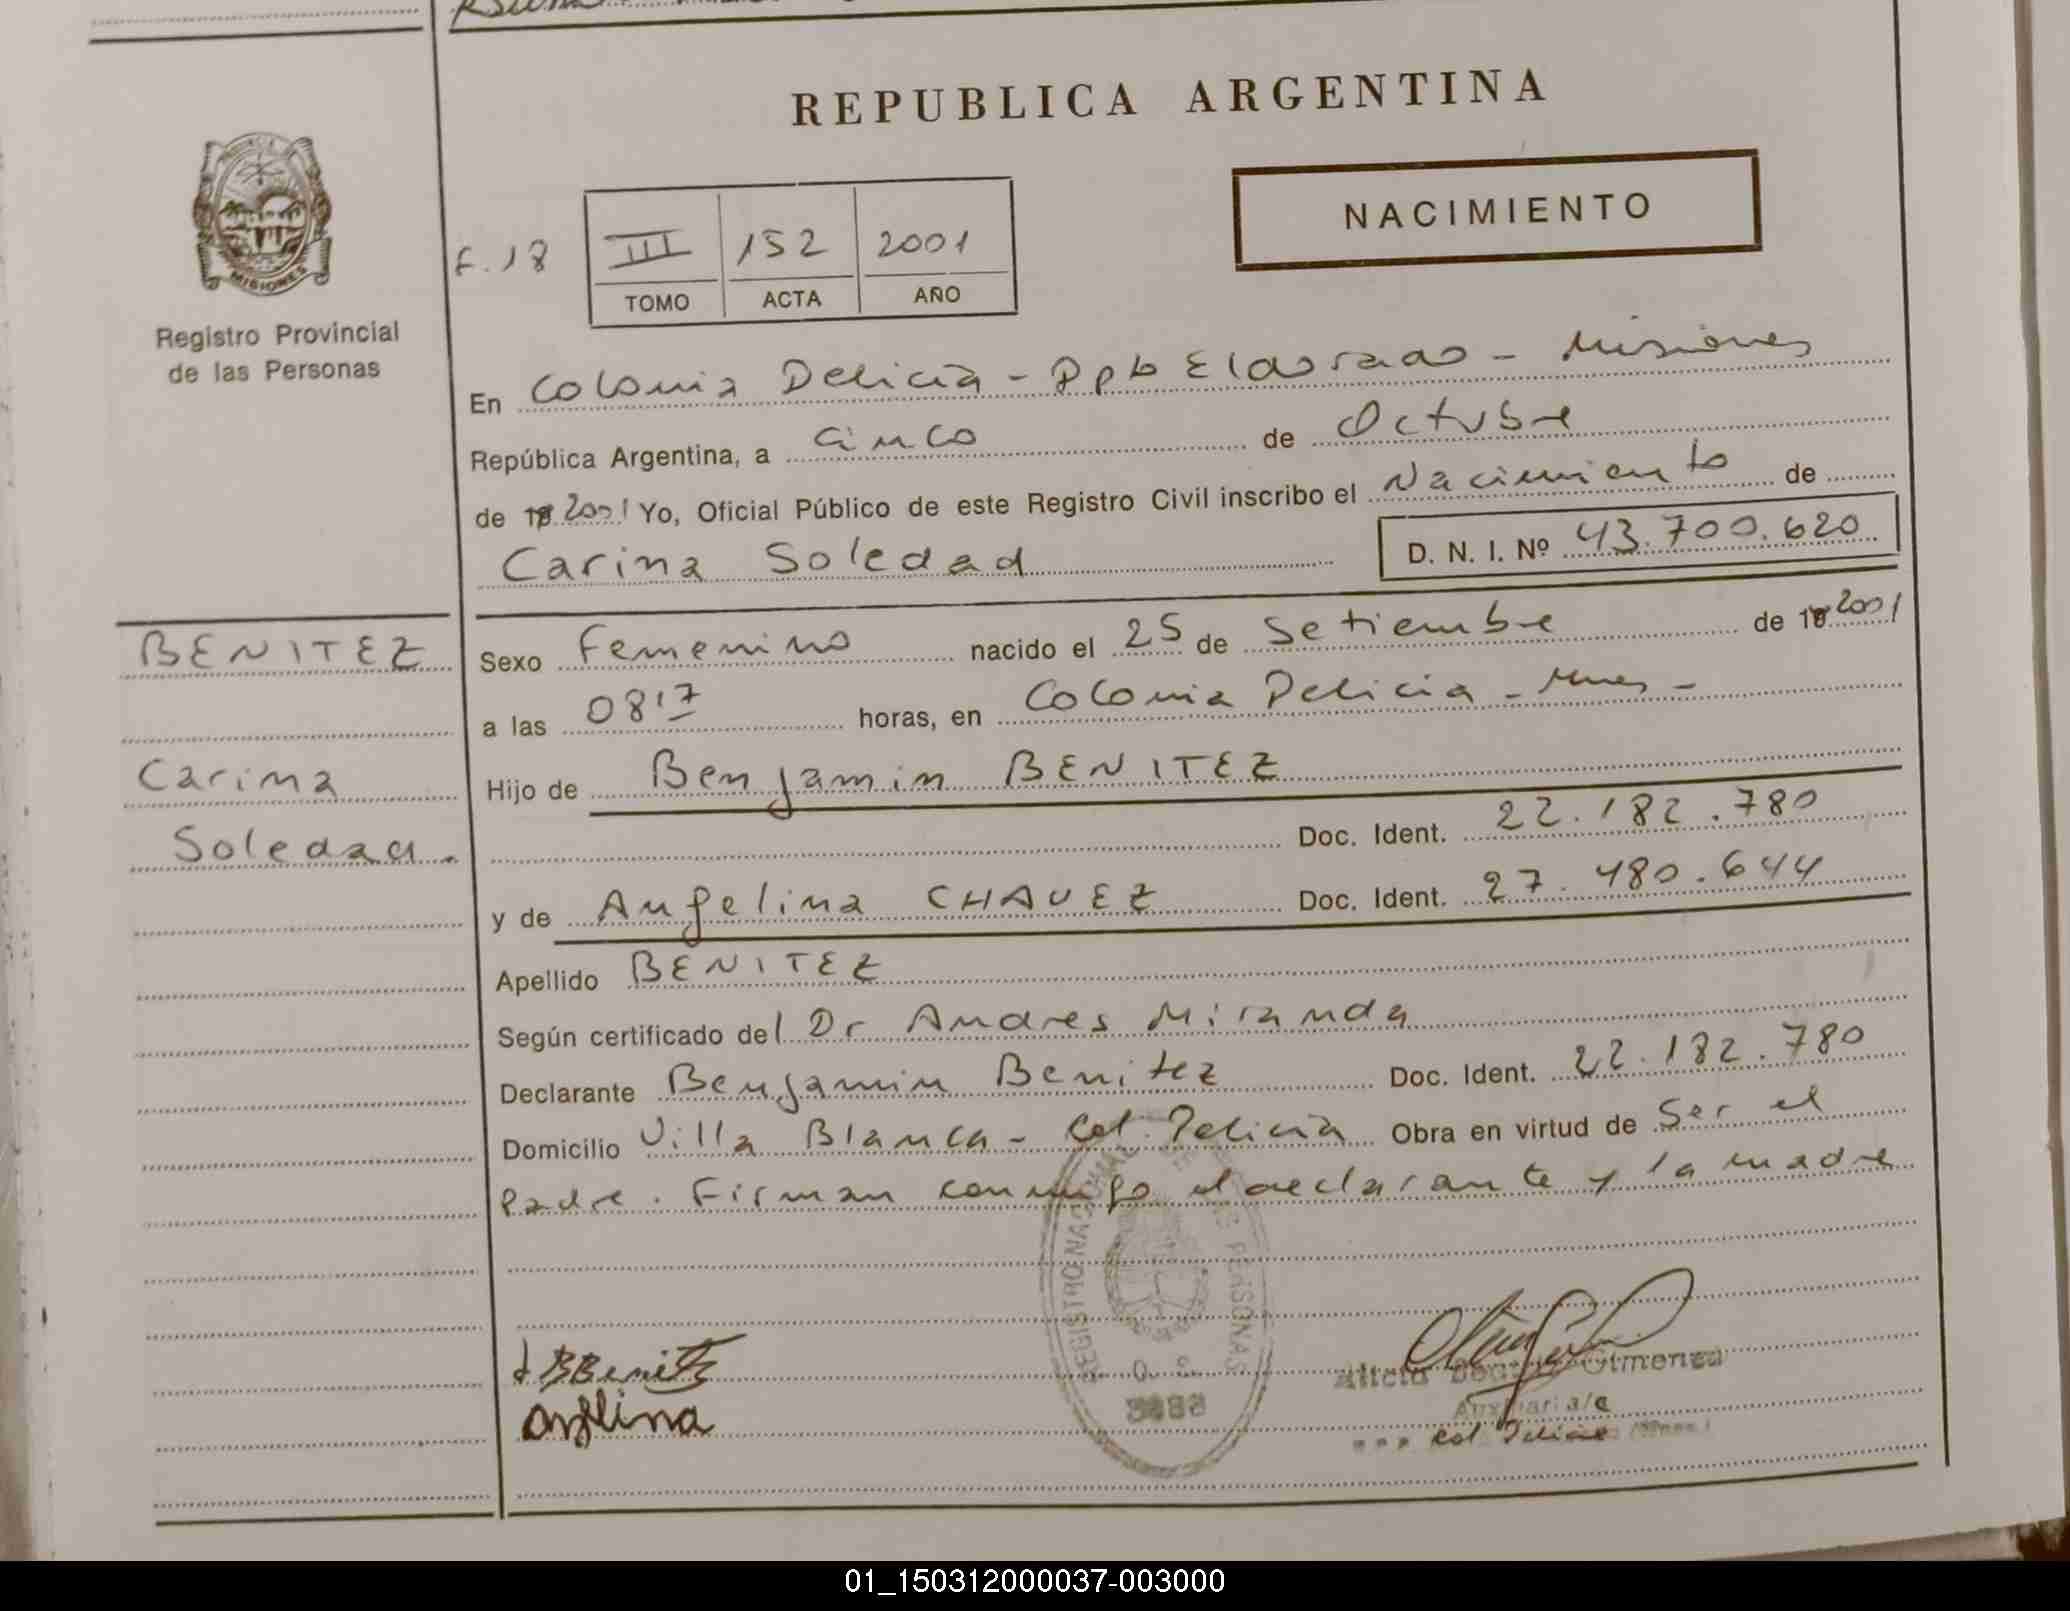 REPUBLICA ARGENTINA
MISIONES
Registro Provincial
de las Personas
NACIMIENTO
F. 18
III 152 2001
TOMO ACTA AÑO
En Colonia Delicia - Dpto Eldorado - Misiones
República Argentina, a cinco de Octubre
de 19 2001 Yo, Oficial Público de este Registro Civil inscribo el Nacimiento de
Carina Soledad D. N. I. Nº 43.700.620
BENITEZ
Carina
Soledad.
Sexo Femenino nacido el 25 de Setiembre de 19 2001
a las 08'17 horas, en Colonia Delicia - Mnes -
Hijo de Benjamin BENITEZ
Doc. Ident. 22.182.780
y de Angelina CHAVEZ Doc. Ident. 27.480.644
Apellido BENITEZ
Según certificado del Dr Andres Miranda
Declarante Benjamin Benitez Doc. Ident. 22.182.780
Domicilio Villa Blanca - Col. Delicia Obra en virtud de Ser el
Padre. Firman conmigo el declarante y la madre
REGISTRO PERSONAS
B Benitez
Angelina
Alicia Gimenez
Auxiliar a/c
Col Delicia
01_150312000037-003000